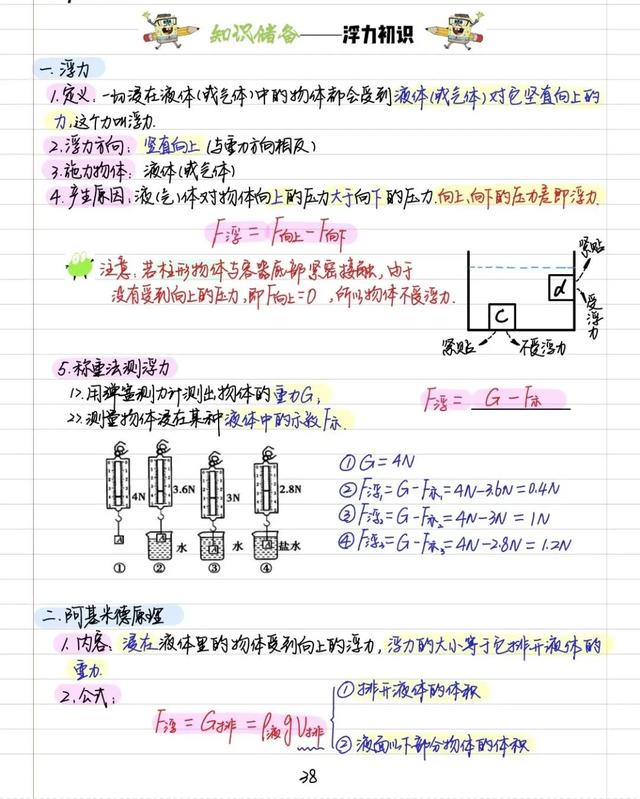 知识储备——浮力初识
一.浮力
1.定义:一切浸在液体(或气体)中的物体都会受到液体(或气体)对它竖直向上的
力,这个力叫浮力.
2.浮力方向:竖直向上(与重力方向相反)
3.施力物体:液体(或气体)
4.产生原因:液(气)体对物体向上的压力大于向下的压力.向上、向下的压力差即浮力.
F浮=F向上-F向下
注意:若柱形物体与容器底部紧密接触,由于
没有受到向上的压力,即F向上=0,所以物体不受浮力.
紧贴
d
受浮力
C
紧贴
不受浮力
5.称重法测浮力
1>.用弹簧测力计测出物体的重力G;
2>.测量物体浸在某种液体中的示数F示.
F浮=G-F示
4N
3.6N
3N
2.8N
A
水
水
盐水
①
②
③
④
①G=4N
②F浮₁=G-F示₁=4N-3.6N=0.4N
③F浮₂=G-F示₂=4N-3N=1N
④F浮₃=G-F示₃=4N-2.8N=1.2N
二.阿基米德原理
1.内容:浸在液体里的物体受到向上的浮力,浮力的大小等于它排开液体的
重力.
2.公式:
F浮=G排=ρ液gV排
①排开液体的体积
②液面以下部分物体的体积
38